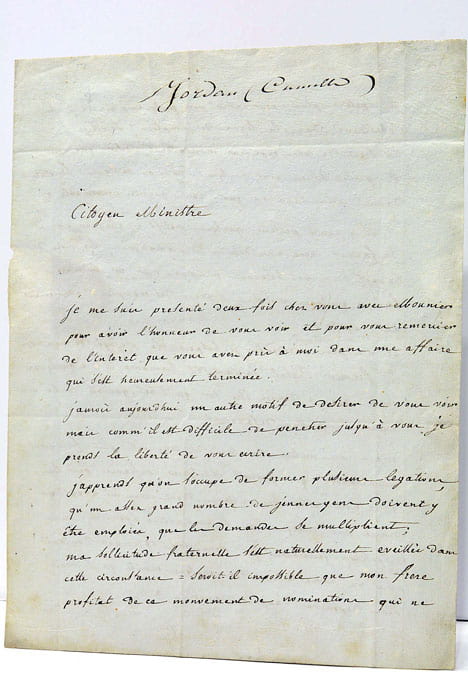 Jordan (Camille)
Citoyen Ministre
je me suis presenté deux fois chez vous avec Mounier
pour avoir l'honneur de vous voir et pour vous remercier
de l'interet que vous avez pris à moi dans une affaire
qui s'est heureusement terminée.
j'aurois aujourdhui un autre motif de desirer de vous voir
mais comm'il est difficile de penetrer jusqu'à vous je
prends la liberté de vous ecrire.
j'apprends qu'on s'occupe de former plusieurs legations,
qu'un assez grand nombre de jeunnes gens doivent y
être emploiés, que les demandes se multiplient;
ma sollicitude fraternelle s'est naturellement eveillée dans
cette circonstance = seroit il impossible que mon frere
profitat de ce mouvement de nominations qui ne